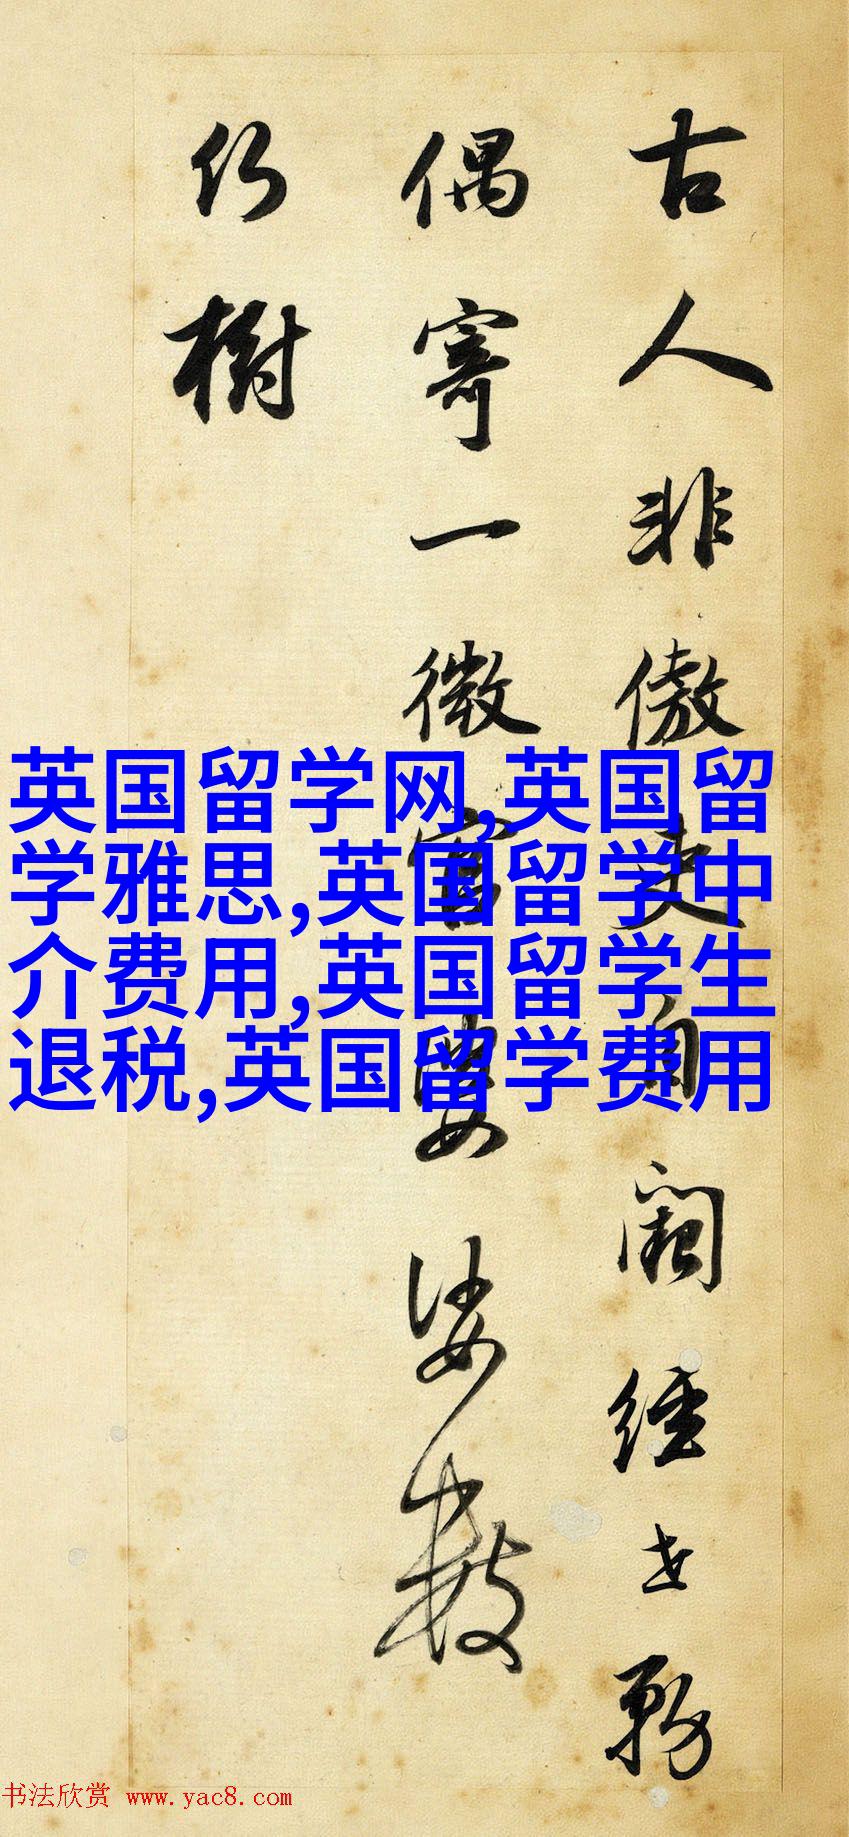 古人非傲吏自阙经世务
偶寄一微官婆娑数
仍树
英国留学网,英国留
学雅思,英国留学中
介费用,英国留学生
退税,英国留学费用
书法欣赏 www.yac8.com